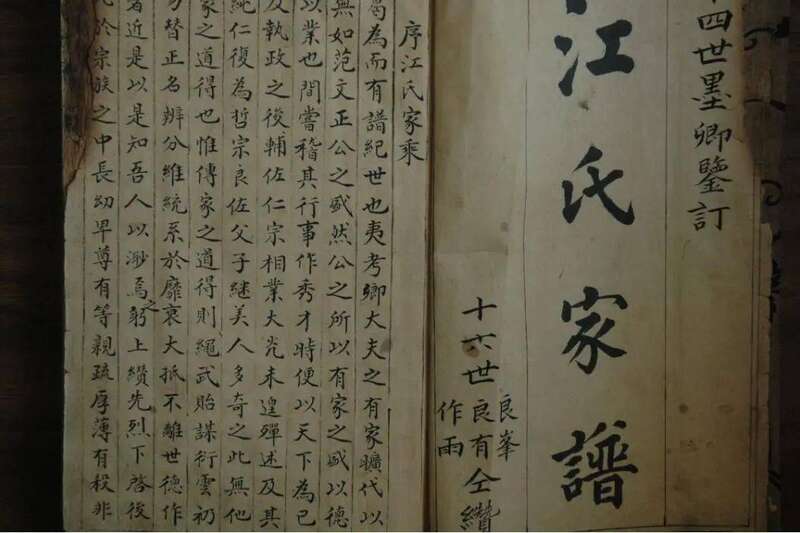 四世墨卿鑒訂
江氏家譜
十六世良峯良有作雨仝纘
序江氏家乘
曷為而有譜紀世也夷考卿大夫之有家曠代以
無如范文正公之盛然公之所以有家之盛以德
以業也間嘗稽其行事作秀才時便以天下為己
及執政之後輔佐仁宗相業大光未遑殫述及其
純仁復為哲宗良佐父子継美人多奇之此無他
家之道得也惟傳家之道得則繩武貽謀衍雲初
勿替正名辨分維統系於靡衷大抵不離世德作
者近是以是知吾人以渺焉之躬上纘先烈下啓後
於宗族之中長幼卑尊有等親疏厚薄有殺非